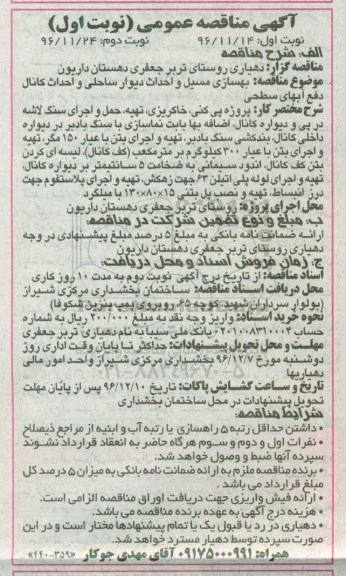 آگهی مناقصه عمومی (نوبت اول)
نوبت اول: ۹۶/۱۱/۱۴ نوبت دوم: ۹۶/۱۱/۲۴
الف. شرح مناقصه
مناقصه گزار: دهیاری روستای تربر جعفری دهستان داریون
موضوع مناقصه: بهسازی مسیل و احداث دیوار ساحلی و احداث کانال
دفع آبهای سطحی
شرح مختصر کار: پروژه پی کنی، خاکریزی، تهیه، حمل و اجرای سنگ لاشه
در پی و دیواره کانال، اضافه بها بابت نماسازی با سنگ بادبر در دیواره
داخلی کانال، بندکشی سنگ بادبر، تهیه و اجرای بتن با عیار ۱۵۰ مگر، تهیه
و اجرای بتن با عیار ۳۰۰ کیلوگرم بر مترمکعب (کف کانال)، لیسه ای کردن
بتن کف کانال، اندود سیمانی به ضخامت ۵ سانتیمتر بر دیواره کانال،
تهیه و اجرای لوله پلی اتیلن ۶۳ جهت زهکش، تهیه و اجرای پلاستوفوم جهت
درز انبساط، تهیه و نصب پل بتنی ۱۵×۸۰×۱۳۰ با میلگرد
محل اجرای پروژه: روستای تربر جعفری دهستان داریون
ب. مبلغ و نوع تضمین شرکت در مناقصه:
ارائه ضمانت نامه بانکی به مبلغ ۵ درصد مبلغ پیشنهادی در وجه
دهیاری روستای تربر جعفری دهستان داریون
ج. زمان فروش اسناد و محل دریافت:
اسناد مناقصه: از تاریخ درج آگهی نوبت دوم به مدت ۱۰ روز کاری
محل دریافت اسناد مناقصه: ساختمان بخشداری مرکزی شیراز
(بولوار سرداران شهید، کوچه ۲۵، روبروی پمپ بنزین شکوفا)
نحوه خرید اسناد: واریز وجه نقد به مبلغ ۲۰۰/۰۰۰ ریال به شماره
حساب بانک ملی سیبا به نام دهیاری تربر جعفری
مهلت و محل تحویل پیشنهادات: حداکثر تا پایان وقت اداری روز
دوشنبه مورخ ۹۶/۱۲/۷ بخشداری مرکزی شیراز واحد امور مالی
دهیاریها
تاریخ و ساعت گشایش پاکات: تاریخ ۹۶/۱۲/۱۰ پس از پایان مهلت
تحویل پیشنهادات در محل ساختمان بخشداری
شرایط مناقصه:
• داشتن حداقل رتبه ۵ راهسازی یا رتبه آب و ابنیه از مراجع ذیصلاح
• نفرات اول و دوم و سوم هرگاه حاضر به انعقاد قرارداد نشوند
سپرده آنها ضبط و وصول خواهد شد.
• برنده مناقصه ملزم به ارائه ضمانت نامه بانکی به میزان ۵ درصد کل
مبلغ قرارداد می باشد.
• ارائه فیش واریزی جهت دریافت اوراق مناقصه الزامی است.
• هزینه درج آگهی به عهده برنده مناقصه می باشد.
• دهیاری در رد یا قبول یک یا تمام پیشنهادها مختار است و در این
صورت سپرده توسط دهیار مسترد خواهد شد.
همراه: ۰۹۱۷۵۰۰۰۹۹۱ آقای مهدی جوکار «۴۴۰۰۳۵۹»